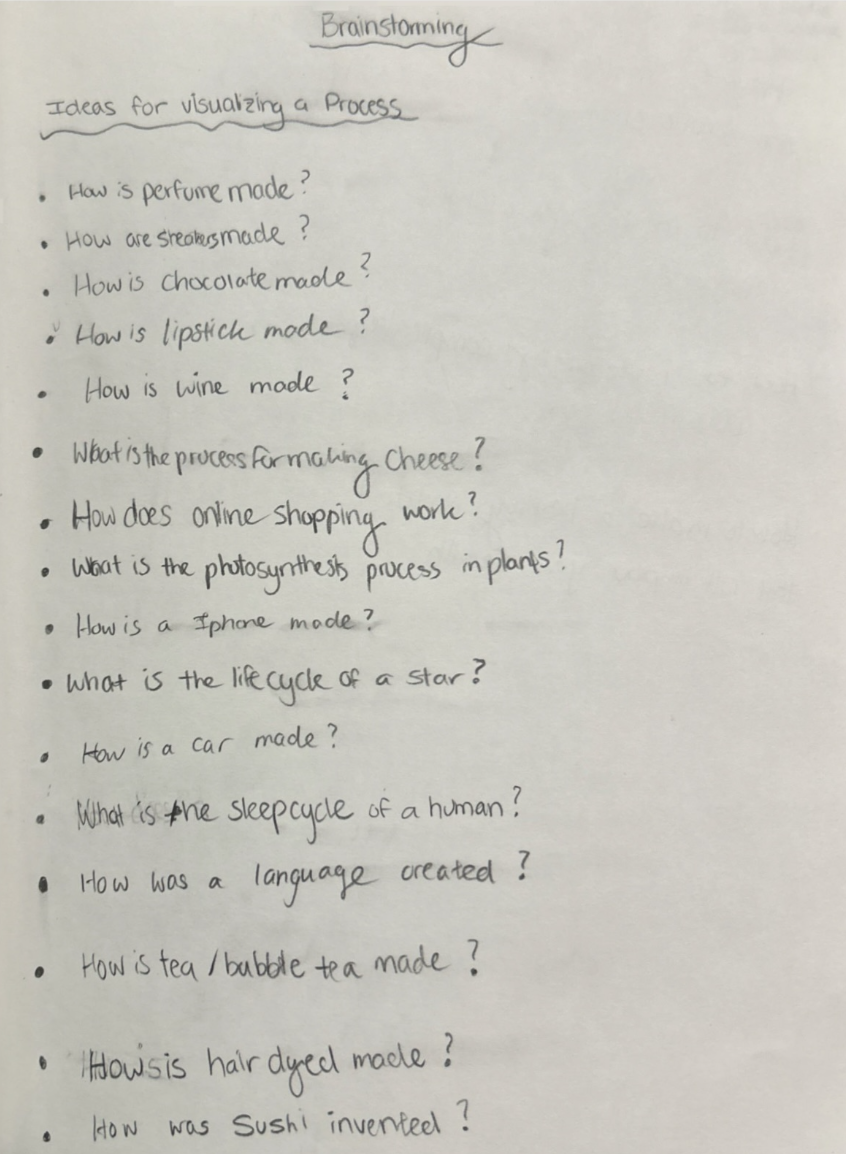 Brainstorming
Ideas for visualizing a Process
• How is perfume made?
• How are sneakers made?
• How is chocolate made?
• How is lipstick made?
• How is wine made?
• What is the process for making cheese?
• How does online shopping work?
• What is the photosynthesis process in plants?
• How is a Iphone made?
• What is the life cycle of a star?
• How is a car made?
• What is the sleepcycle of a human?
• How was a language created?
• How is tea/bubble tea made?
• How is hair dyed made?
• How was Sushi invented?